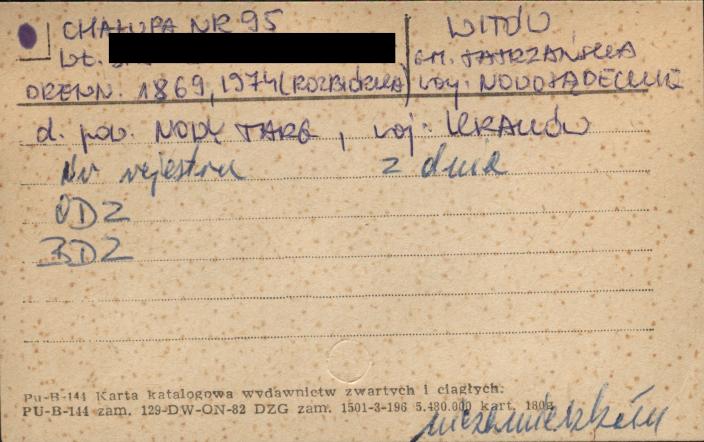 CHAŁUPA NR 95
WITÓW
WŁ.
GM. TATRZAŃSKA
DREWN. 1869, 1974 (ROZBIÓRKA)
WOJ. NOWOSĄDECKIE
d. pow. NOWY TARG, woj. KRAKÓW
Nr rejestru z dnia
ODZ
BDZ
Pu-B-144 Karta katalogowa wydawnictw zwartych i ciągłych.
PU-B-144 zam. 129-DW-ON-82 DZG zam. 1501-3-196 5.480.000 kart. 180g
niezamieszkały